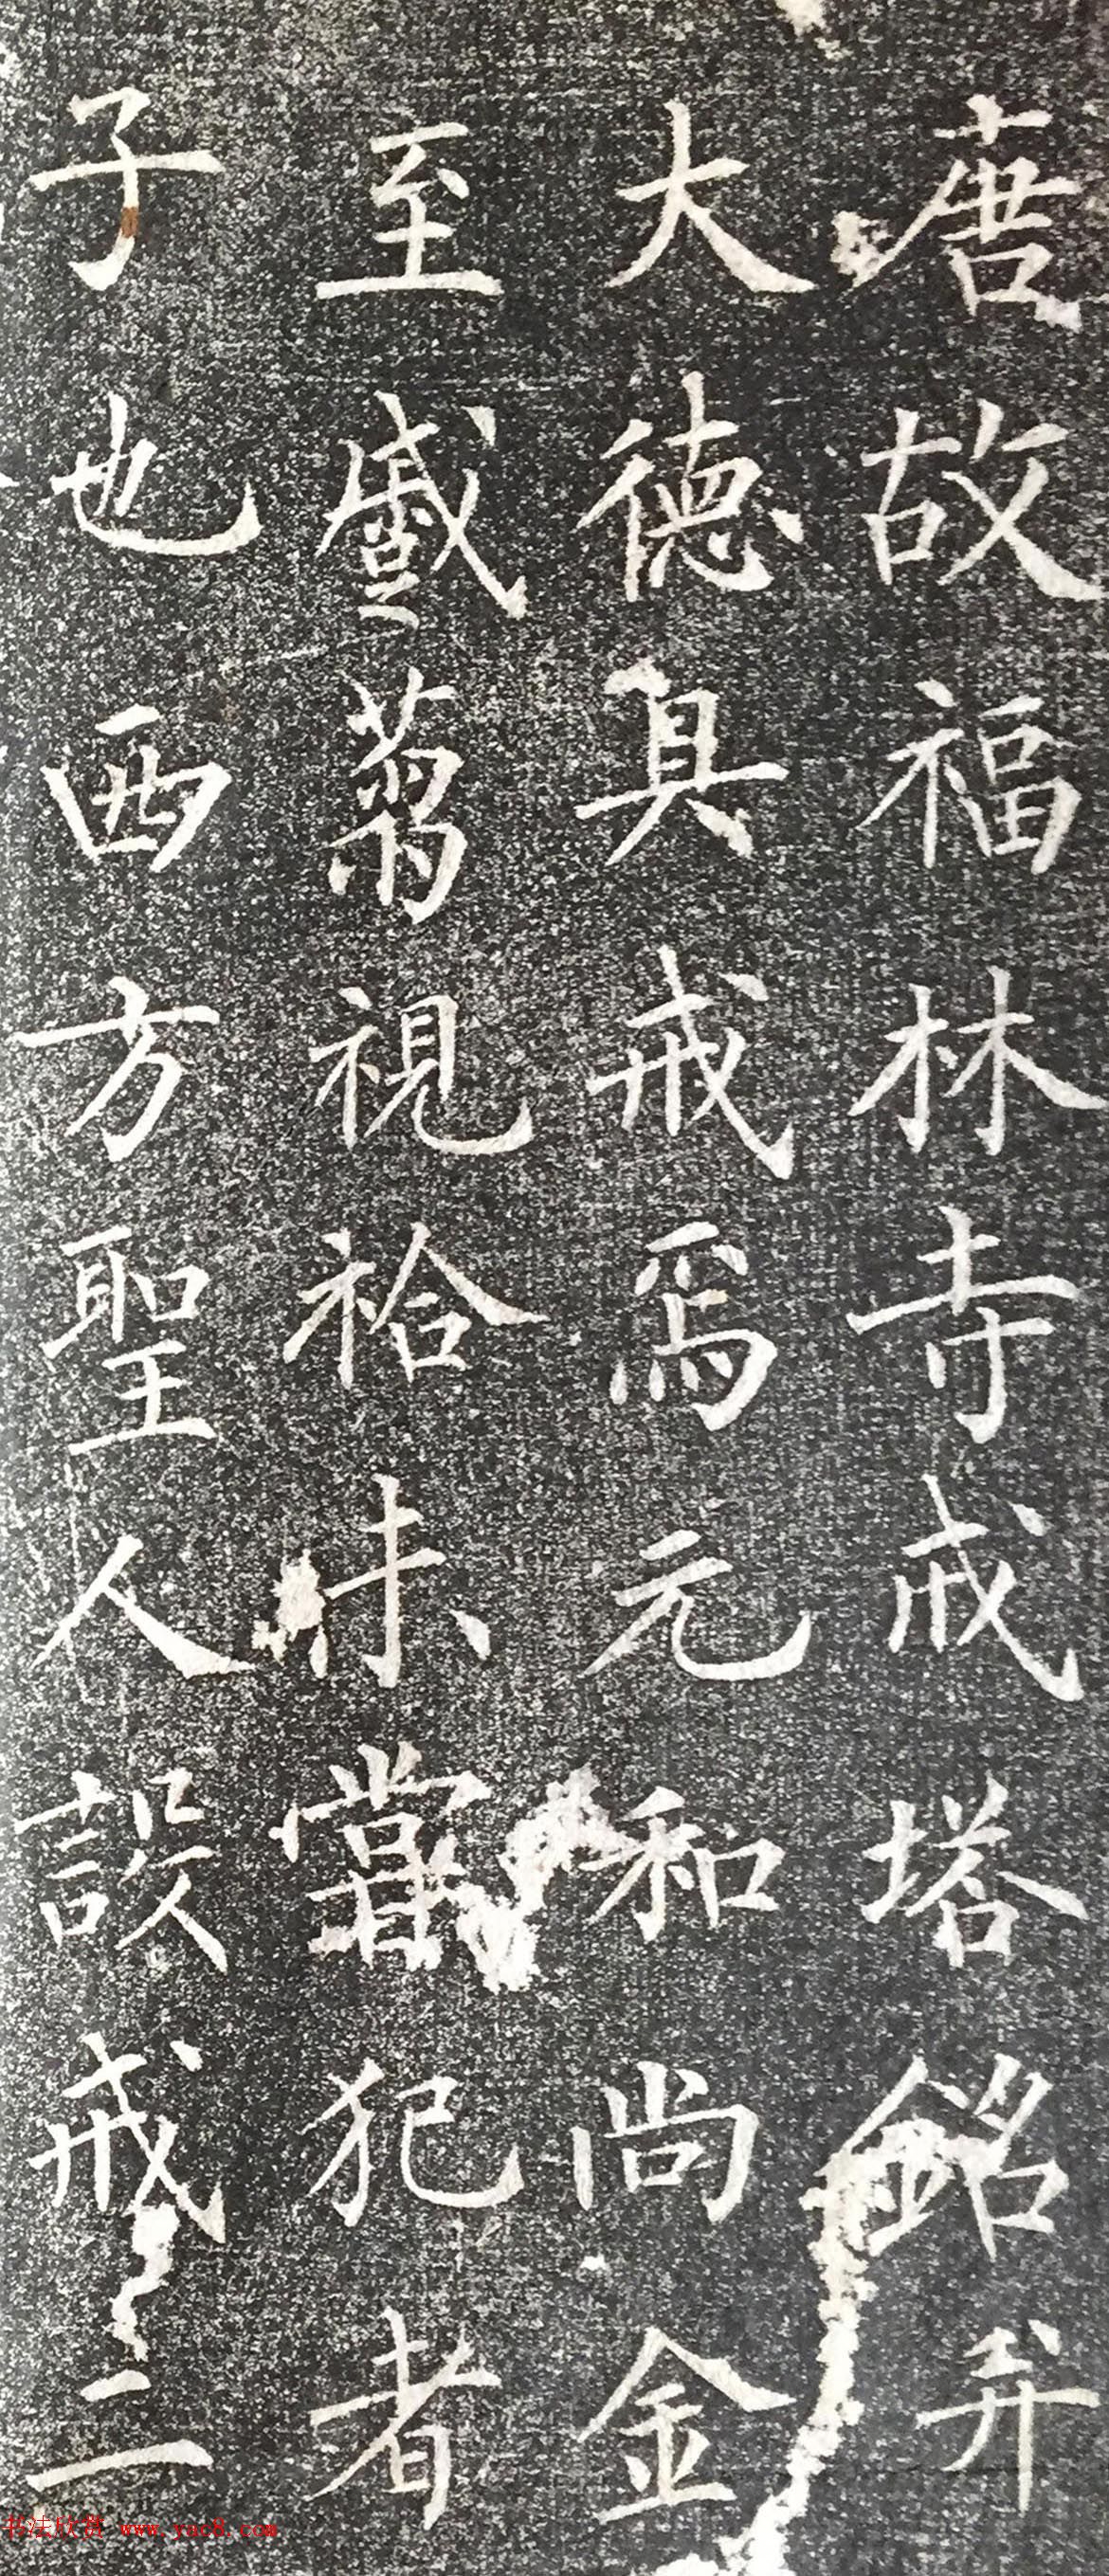 唐故福林寺戒塔銘并
大德具戒爲元和尚金
至戲蒭視袷未嘗犯者
子也西方聖人設戒二
书法欣赏 www.yac8.com